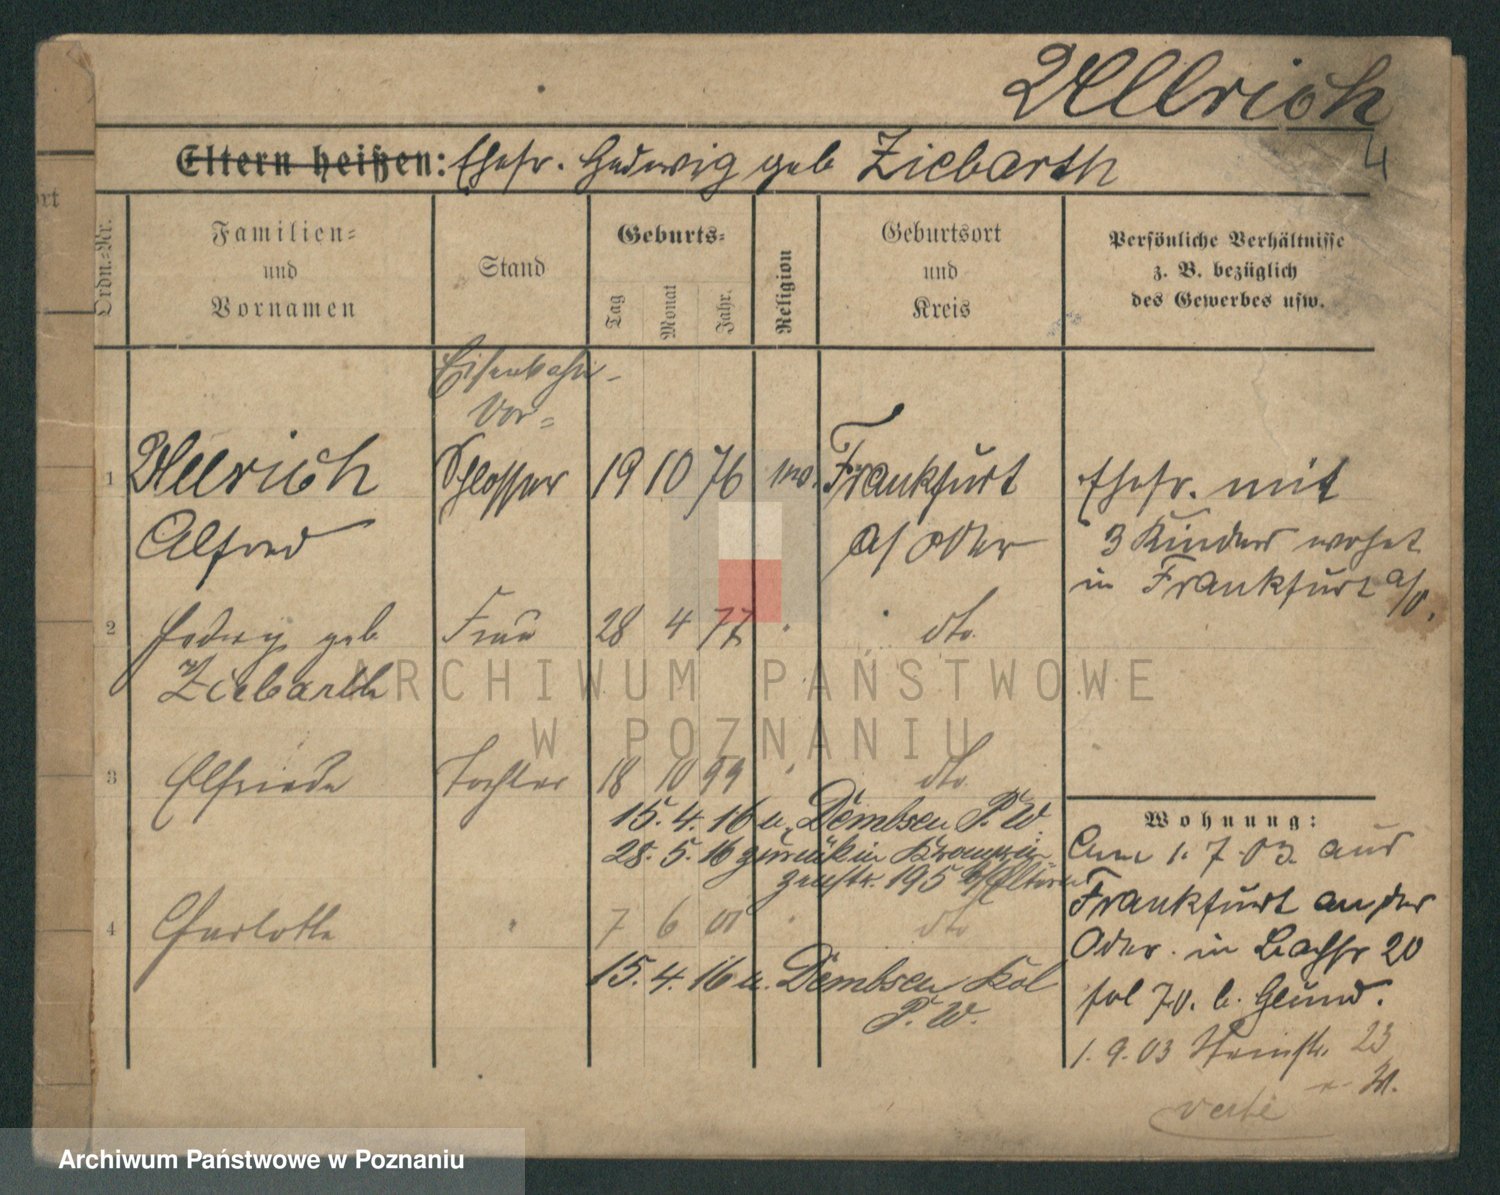 Ullrich
Eltern heißen: Ehefr. Hedwig geb Ziebarth
Ordn.-Nr.
Familien-
und
Vornamen
Stand
Geburts-
Tag
Monat
Jahr.
Religion
Geburtsort
und
Kreis
Persönliche Verhältnisse
z. B. bezüglich
des Gewerbes usw.
Eisenbahn-
Vor-
1 Ullrich Schlosser 19 10 76 Frankfurt Ehefr. mit
Alfred a/ Oder 3 Kinder wohnt
in Frankfurt a/O.
2 Hedwig geb Frau 28 4 77 " dto.
Ziebarth
3 Elfriede Tochter 18 10 99 " dto
15. 4. 16 n. Dembsen P. W.
28. 5. 16 zurück in Kronprin-
zenstr. 195 b/Eltern
4 Charlotte " 7 6 01 " dto
15. 4. 16 n. Dembsen Kol
P. W.
Wohnung:
Am 1. 7. 03 aus
Frankfurt an der
Oder in 20
bei
1. 9. 03 23
verte
ARCHIWUM PAŃSTWOWE
W POZNANIU
Archiwum Państwowe w Poznaniu